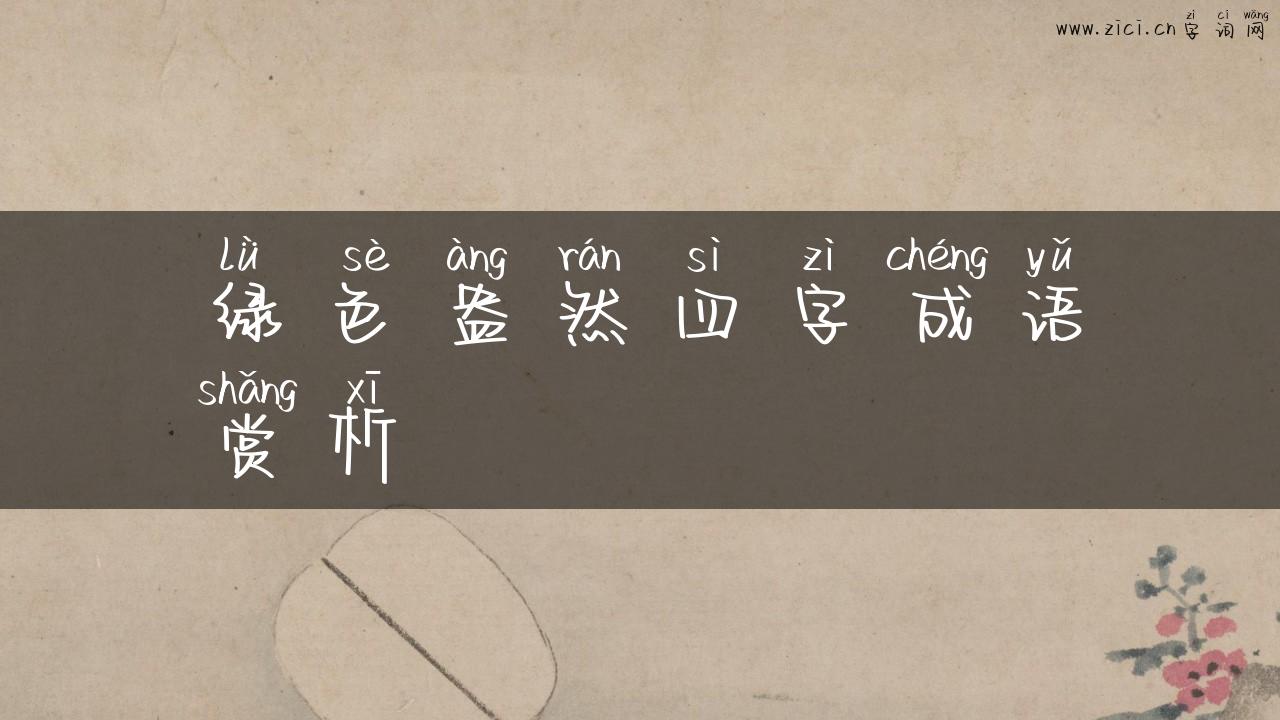 zì cí wǎng
www.zici.cn字词网
lǜ sè àng rán sì zì chéng yǔ
绿色盎然四字成语
shǎng xī
赏析